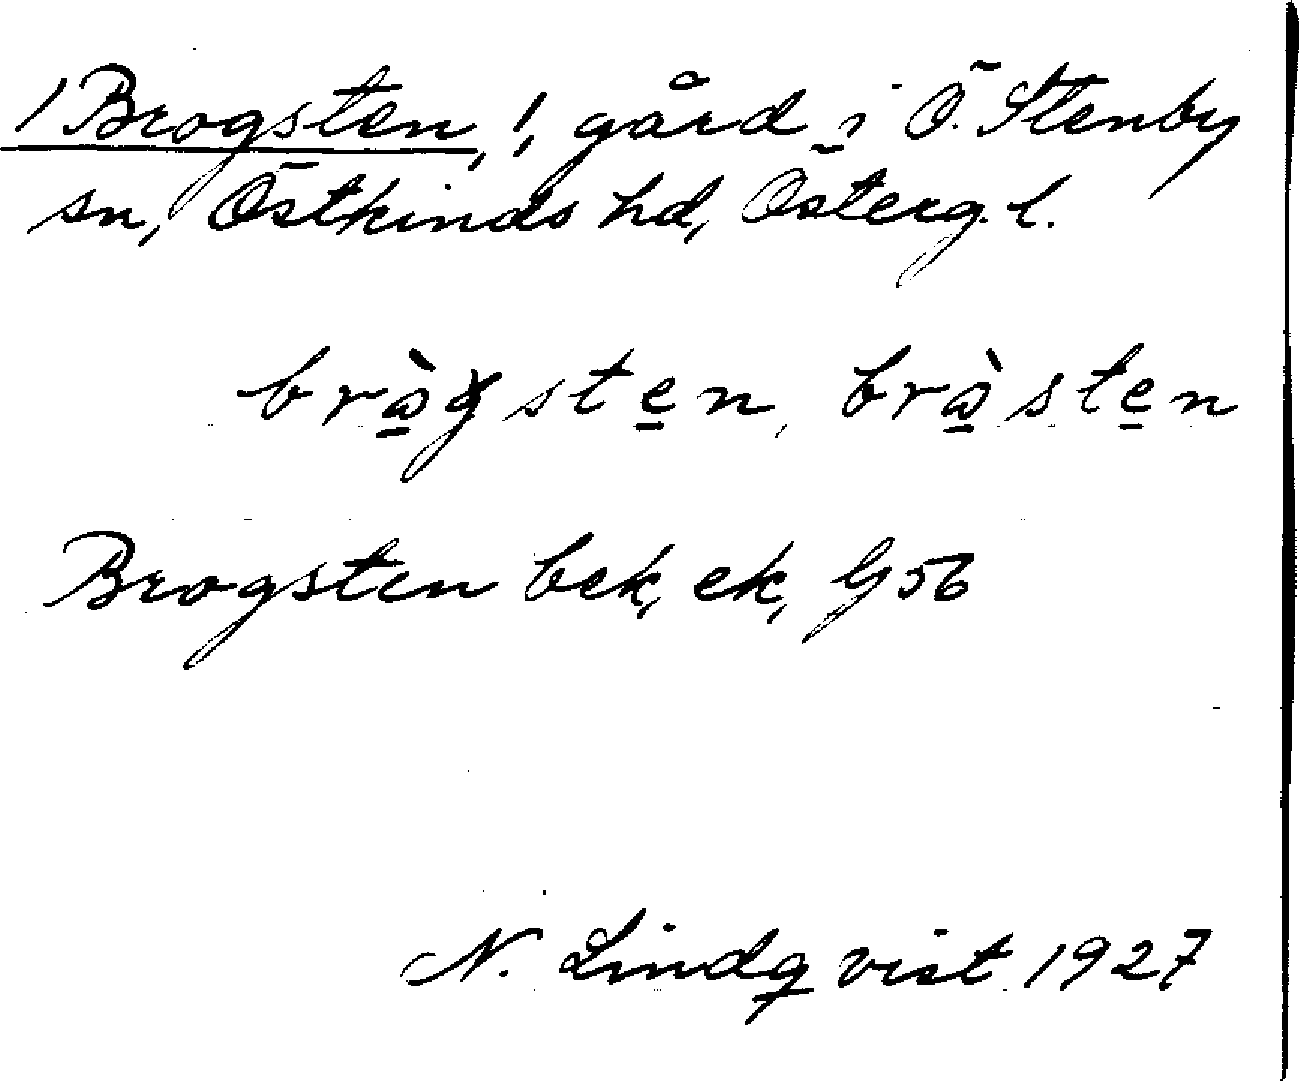 1 Brogsten, !, gård i Ö. Stenby
sn, Östkinds hd, Österg. l.
brågsten, bråsten
Brogsten bek, ek, G 56
N. Lindqvist 1927